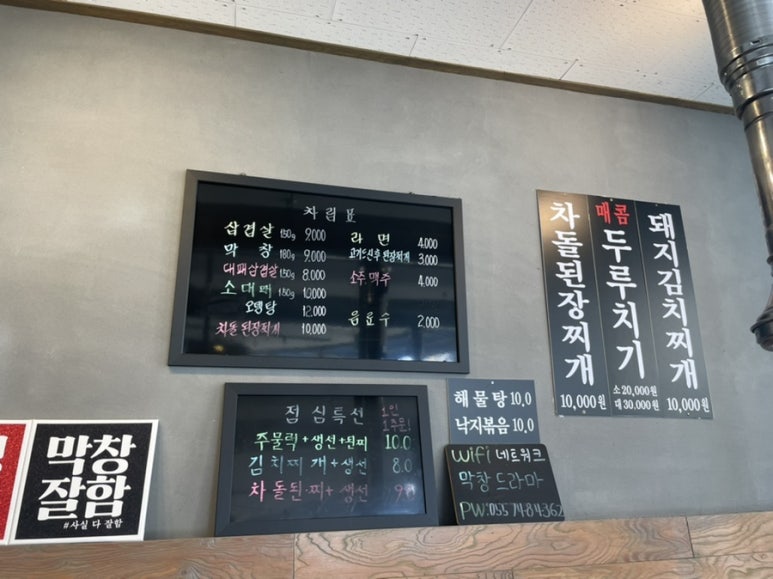 차림표
삼겹살 150g 9.000
막창 180g 9.000
대패삼겹살 150g 8.000
소대패 150g 10,000
오뎅탕 12.000
차돌된장찌개 10,000
라면 4.000
3,000
소주.맥주 4,000
음료수 2.000
차돌된장찌개
10,000원
매콤 두루치기
소 20,000원
대 30,000원
돼지김치찌개
10,000원
점심특선
1인
1주문!
주물럭+생선+된찌 10.0
김치찌개+생선 8.0
차돌된.찌+생선
해물탕 10,0
낙지볶음 10,0
wifi 네트워크
막창드라마
PW:055 7484362
막창
잘함
#사실 다 잘함